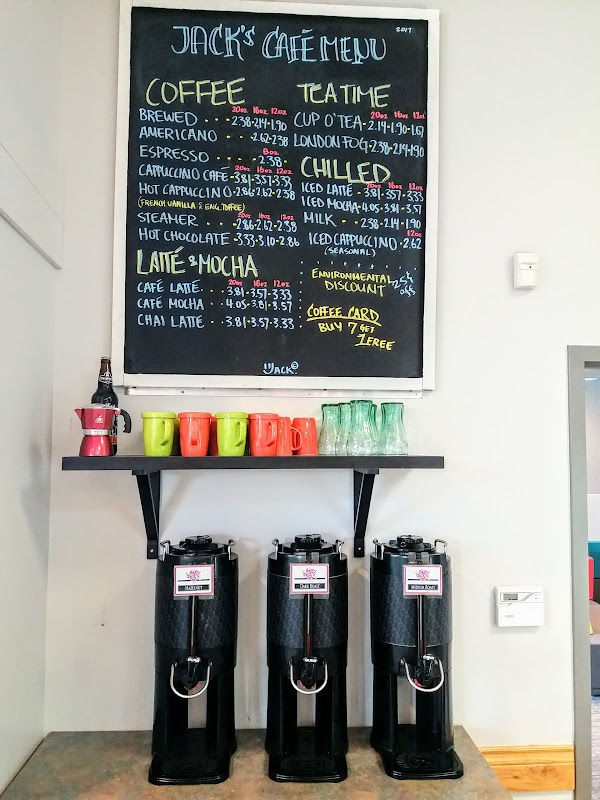 JACK'S CAFÉ MENU
2017
COFFEE
20oz 16oz 12oz
BREWED ---- 2.38-2.14-1.90
AMERICANO --- 2.62-2.38
8oz
ESPRESSO ---- 2.38-
20oz 16oz 12oz
CAPPUCCINO CAFÉ-3.81-3.57-3.33
HOT CAPPUCCINO-2.86-2.62-2.38
(FRENCH VANILLA & ENG. TOFFEE)
20oz 16oz 12oz
STEAMER ---2.86-2.62-2.38
HOT CHOCOLATE -3.33-3.10-2.86
LATTÉ & MOCHA
20oz 16oz 12oz
CAFÉ LATTÉ ---3.81-3.57-3.33
CAFÉ MOCHA --4.05-3.81-3.57
CHAI LATTÉ --3.81-3.57-3.33
TEA TIME
20oz 16oz 12oz
CUP O' TEA-2.14-1.90-1.67
LONDON FOG-2.38-2.14-1.90
CHILLED
20oz 16oz 12oz
ICED LATTÉ -3.81-3.57-3.33
ICED MOCHA-4.05-3.81-3.57
MILK --- 2.38-2.14-1.90
12oz
ICED CAPPUCCINO -2.62
(SEASONAL)
ENVIRONMENTAL
DISCOUNT
25¢ OFF
COFFEE CARD
BUY 7 GET
1 FREE
JACK ©
HAZELNUT
DARK ROAST
MEDIUM ROAST